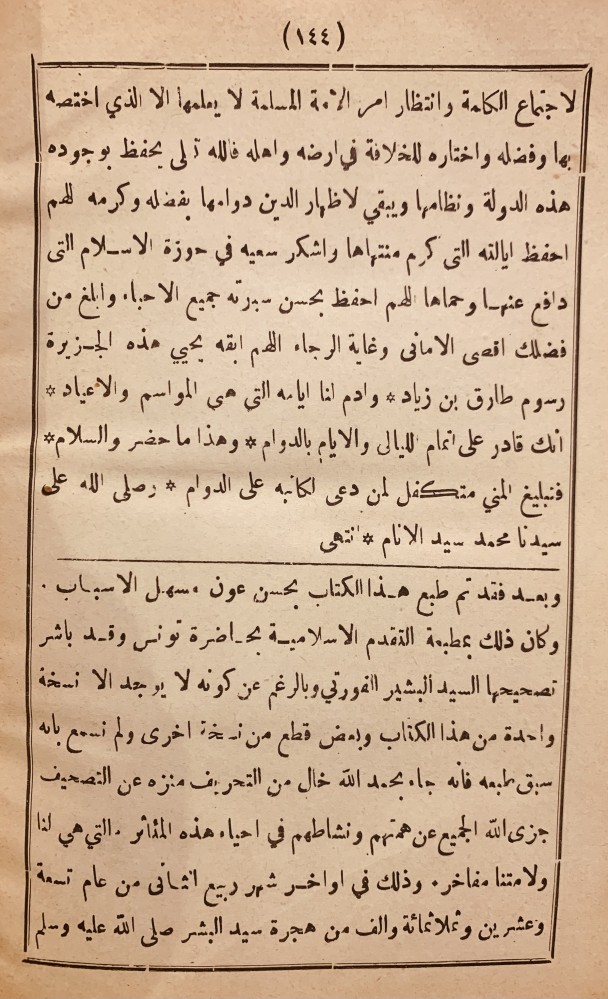 (١٤٤)
لاجتماع الكلمة وانتظار امر الامة المسلمة لا يعلمها الا الذي اختصه
بها وفضله واختاره للخلافة في ارضه واهله فالله تعالى يحفظ بوجوده
هذه الدولة ونظامها ويبقي لاظهار الدين دوامها بفضله وكرمه اللهم
احفظ ايالته التى كرم منتهاها واشكر سعيه في حوزة الاسلام التى
دافع عنها وحماها اللهم احفظ بحسن سيرته جميع الاحباء وابلغ من
فضلك اقصى الامانى وغاية الرجاء اللهم ابقه يحيي هذه الجزيرة
رسوم طارق بن زياد * وادم لنا ايامه التي هى المواسم والاعياد *
انك قادر على اتمام الليالى والايام بالدوام * وهذا ما حضر والسلام *
فتبليغ المني متكفل لمن دعى لكاتبه على الدوام * وصلى الله على
سيدنا محمد سيد الانام * انتهى
وبعد فقد تم طبع هذا الكتاب بحسن عون مسهل الاسباب .
وكان ذلك بمطبعة التقدم الاسلامية بحاضرة تونس وقد باشر
تصحيحها السيد البشير الفورتي وبالرغم عن كونه لا يوجد الا نسخة
واحدة من هذا الكتاب وبعض قطع من نسخة اخرى ولم نسمع بانه
سبق طبعه فانه جاء بحمد الله خال من التحريف منزه عن التصحيف
جزى الله الجميع عن همتهم ونشاطهم في احياء هذه المئاثر . التي هي لنا
ولامتنا مفاخر . وذلك في اواخر شهر ربيع الثانى من عام تسعة
وعشرين وثلاثمائة والف من هجرة سيد البشر صلى الله عليه وسلم